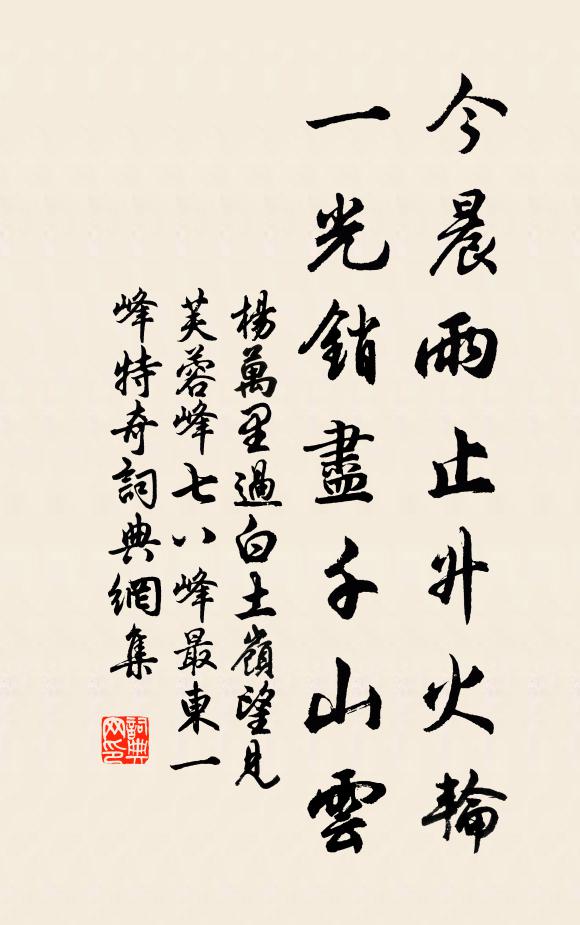 今晨雨止升火輪
一光銷盡千山雲
楊萬里過白土嶺望見
芙蓉峰七八峰最東一
峰特奇詞典網集
詞典
网印